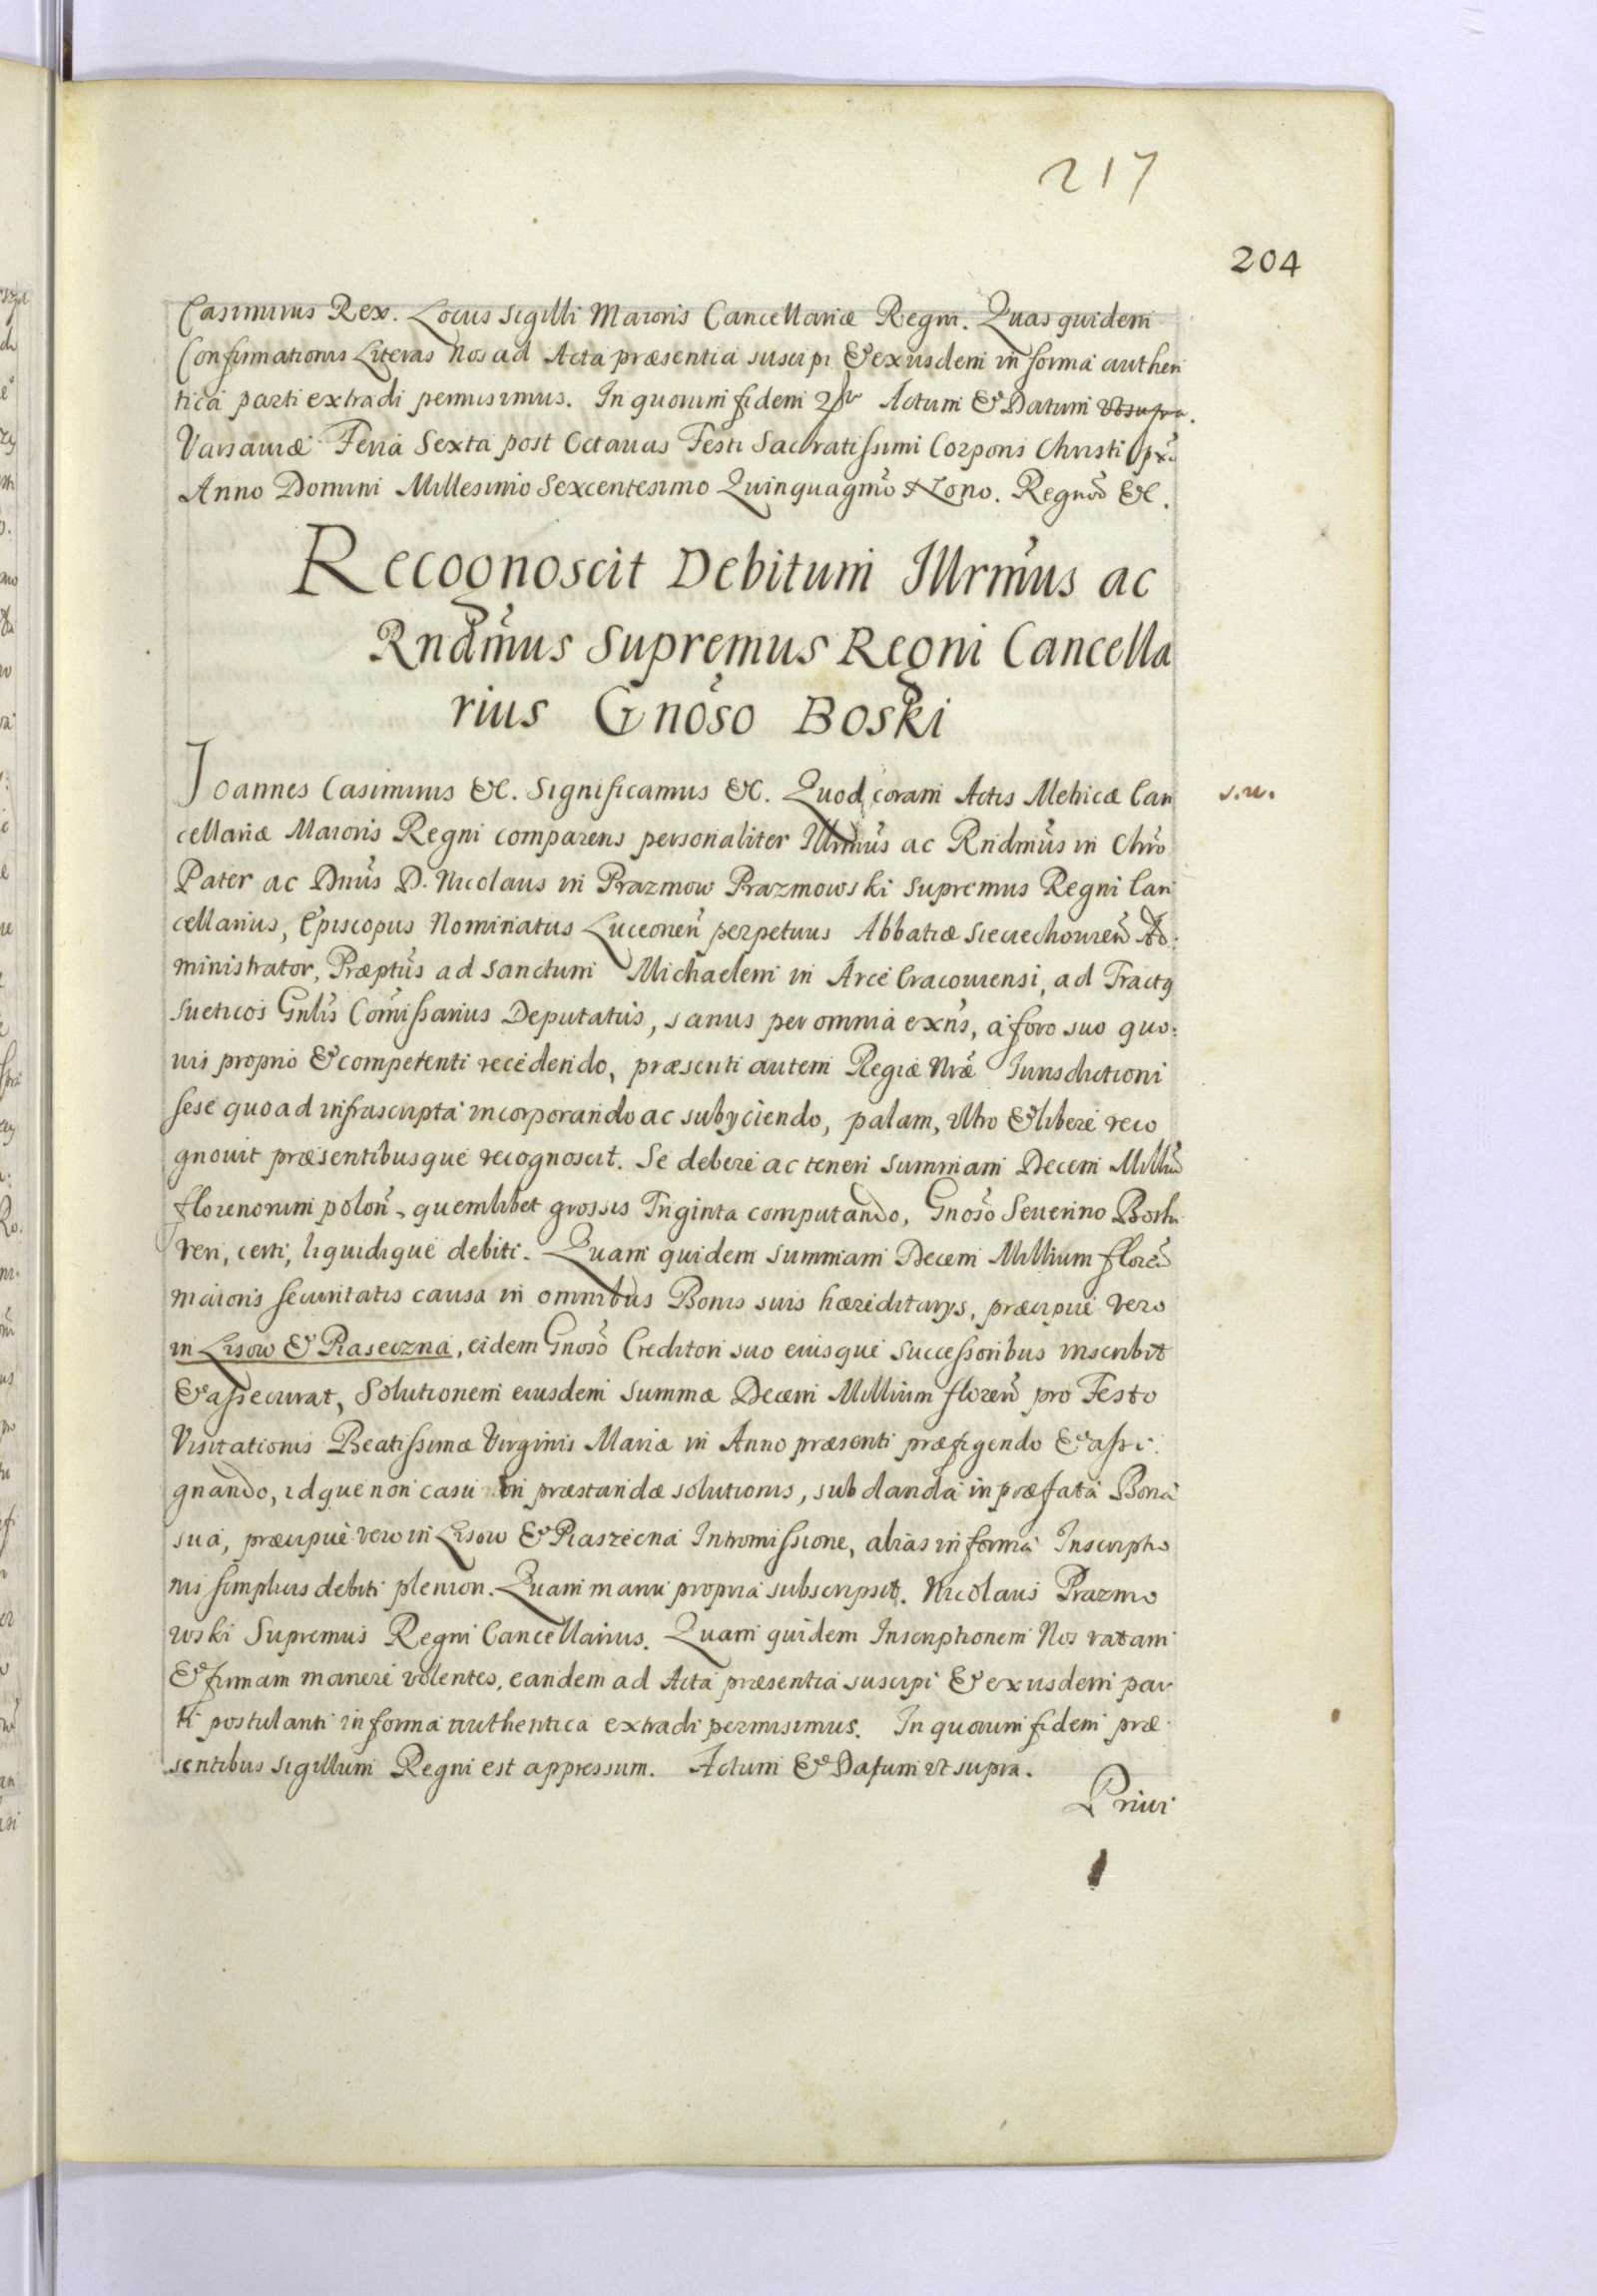 217
204
Casimirus Rex. Locus sigilli Maioris Cancellariæ Regni. Quas quidem
Confirmationis Literas Nos ad Acta præsentia suscipi & exijsdem in forma authen
tica parti extradi permisimus. In quorum fidem Actum & Datum ut supra.
Varsauiæ Feria Sexta post Octauas Festi Sacratissimi Corporis Christi
Anno Domini Millesimo Sexcentesimo Quinquagmo Nono. Regnor &c.
Recognoscit Debitum Illrmus ac
Rndmus Supremus Regni Cancella
rius Gnoso Boski
Joannes Casimirus &c. Significamus &c. Quod coram Actis Metricæ Can
s.u.
cellariæ Maioris Regni comparens personaliter Illrmus ac Rndmus in Chro
Pater ac Dnus D. Nicolaus in Prazmow Prazmowski Supremus Regni Can
cellarius, Episcopus Nominatus Luceonen perpetuus Abbatiæ Sieciechouien Ad:
ministrator, Præptus ad Sanctum Michaelem in Arce Cracouiensi, ad Tractq
Sueticos Gnlis Comissarius Deputatus, sanus per omnia exns, a foro suo quo:
uis proprio & competenti recedendo, præsenti autem Regiæ Nræ Iurisdictioni
sese quoad infrascripta incorporando ac subijciendo, palam, ultro & libere reco
gnouit præsentibusque recognoscit. Se debere ac teneri summam Decem Milliu
florenorum polon, quemlibet grossis Triginta computando, Gnoso Seuerino Boski
veri, certi, liquidique debiti. Quam quidem summam Decem Millium floren
maioris securitatis causa in omnibus Bonis suis hæreditarijs, præcipue vero
in Lisow & Piaseczna, eidem Gnoso Creditori suo eiusque successoribus inscribit
& assecurat, Solutionem eiusdem summæ Decem Millium floren pro Festo
Visitationis Beatissimæ Virginis Mariæ in Anno præsenti præfigendo & assi:
gnando, idque non casu in præstandæ solutionis, sub danda in præfata Bona
sua, præcipue vero in Lisow & Piaszecna Intromissione, alias in forma Inscriptio
nis simplicis debiti pleniori. Quam manu propria subscripsit. Nicolaus Prazmo
wski Supremus Regni Cancellarius. Quam quidem Inscriptionem Nos ratam
& firmam manere volentes, eandem ad Acta præsentia suscipi & exijsdem par
ti postulanti in forma authentica extradi permisimus. In quorum fidem præ
sentibus sigillum Regni est appressum. Actum & Datum ut supra.
Priui